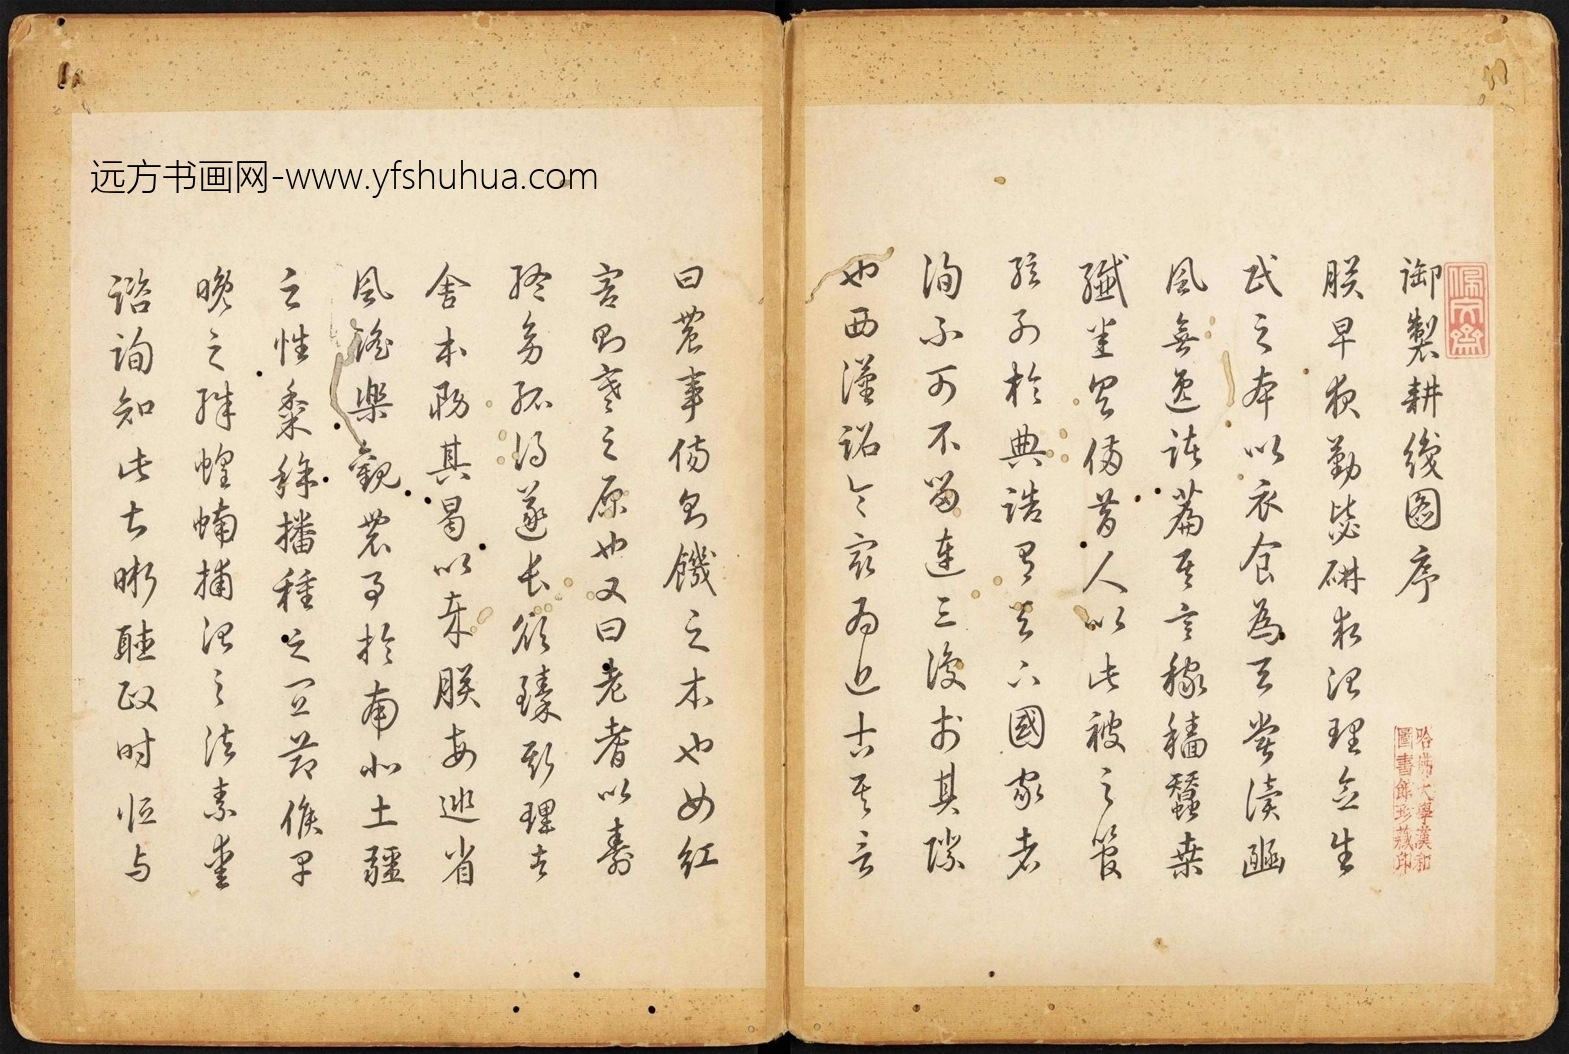 佩文齋
御製耕織圖序
朕早夜勤毖研求治理念生
民之本以衣食為天嘗讀豳
風無逸諸篇其言稼穡蠶桑
纖悉具備昔人以此被之管
絃列於典誥有天下國家者
洵不可不留連三復於其際
也西漢詔令最為近古其言
曰農事傷則饑之本也女紅
害則寒之原也又曰老耆以壽
終幼孤得遂長欲臻斯理者
舍本務其曷以哉朕每巡省
風謠樂觀農事於南北土疆
之性黍稌播種之宜節候早
晚之殊蝗蝻捕治之法素愛
諮詢知此甚晰聽政時恒與
哈佛大學漢和
圖書館珍藏印
远方书画网-www.yfshuhua.com